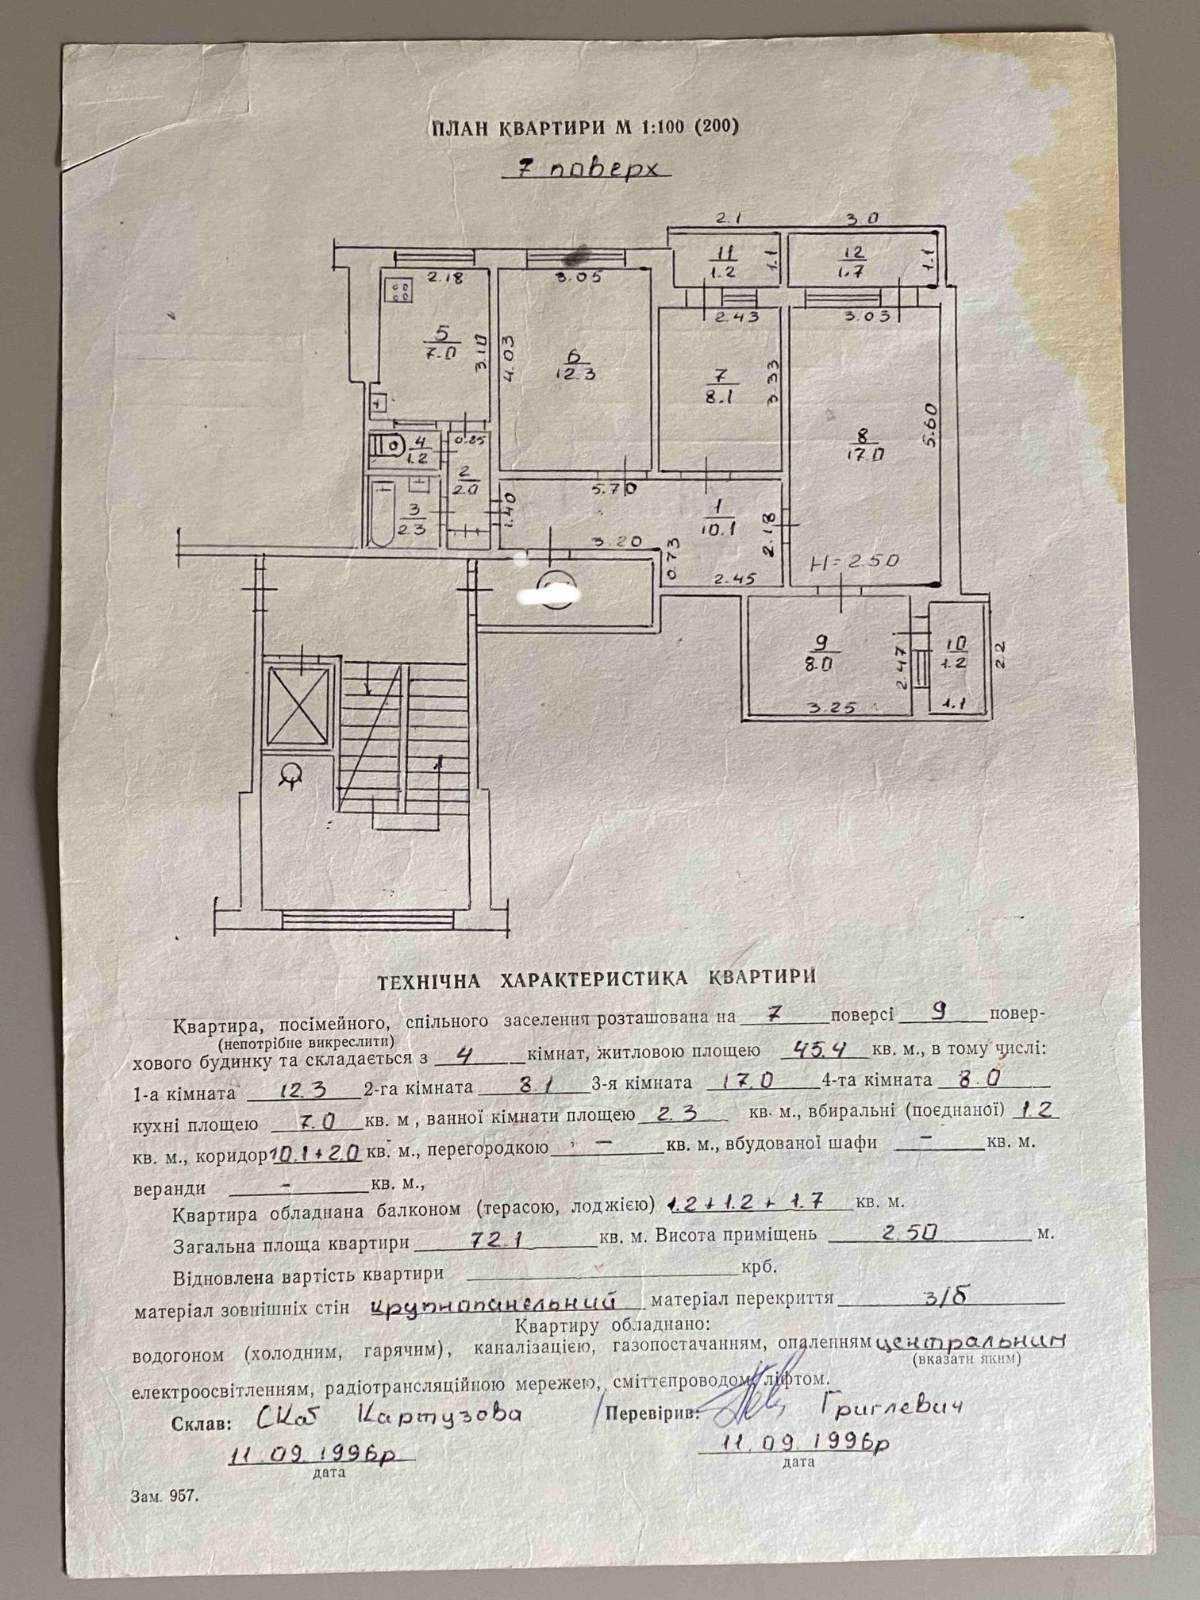 ПЛАН КВАРТИРИ М 1:100 (200)
7 поверх
2.1 3.0
11 1.2 1.1 12 1.7 1.1
2.18 3.05 2.43 3.03
5 7.0 3.10 4.03 6 12.3 7 8.1 3.33 8 17.0 5.60
4 1.2 0.85
2 2.0 3 2.3 1.40 5.70 1 10.1 2.18
3.20 0.73 2.45 H=2.50
9 8.0 2.47 10 1.2 2.2
3.25 1.1
ТЕХНІЧНА ХАРАКТЕРИСТИКА КВАРТИРИ
Квартира, посімейного, спільного заселення розташована на 7 поверсі 9 повер-
(непотрібне викреслити)
хового будинку та складається з 4 кімнат, житловою площею 45.4 кв. м., в тому числі:
1-а кімната 12.3 2-га кімната 8.1 3-я кімната 17.0 4-та кімната 8.0
кухні площею 7.0 кв. м , ванної кімнати площею 2.3 кв. м., вбиральні (поєднаної) 1.2
кв. м., коридор 10.1+2.0 кв. м., перегородкою — кв. м., вбудованої шафи - кв. м.
веранди - кв. м.,
Квартира обладнана балконом (терасою, лоджією) 1.2+1.2+1.7 кв. м.
Загальна площа квартири 72.1 кв. м. Висота приміщень 2.50 м.
Відновлена вартість квартири крб.
матеріал зовнішніх стін крупнопанельний матеріал перекриття з/б
Квартиру обладнано:
водогоном (холодним, гарячим), каналізацією, газопостачанням, опаленням центральним
(вказати яким)
електроосвітленням, радіотрансляційною мережею, сміттєпроводом, ліфтом.
Склав: Картузова Перевірив: Григлевич
11.09.1996р 11.09.1996р
дата дата
Зам. 957.